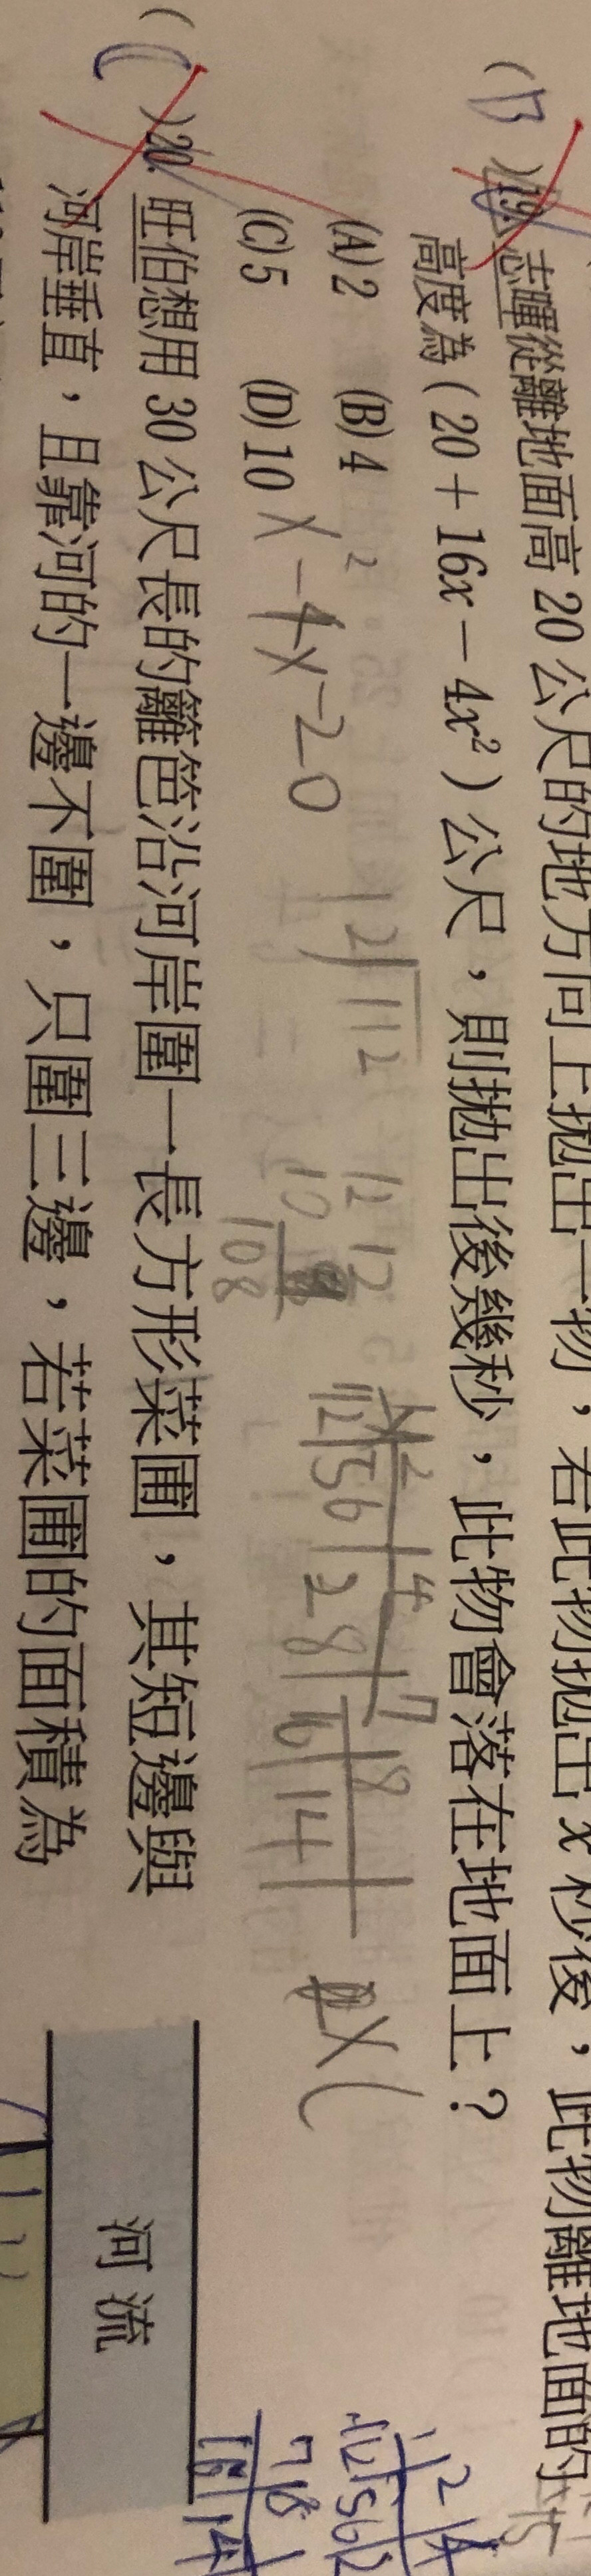 (B)19. 志暉從離地面高 20 公尺的地方向上拋出一物，若此物拋出 x 秒後，此物離地面的
高度為(20＋16x－4x²)公尺，則拋出後幾秒，此物會落在地面上？
(A) 2 (B) 4
(C) 5 (D) 10
x²-4x-20
12 112
12 12
10
108
12 56 28
14
x(
(C)20. 旺伯想用 30 公尺長的籬笆沿河岸圍一長方形菜圃，其短邊與
河岸垂直，且靠河的一邊不圍，只圍三邊，若菜圃的面積為
河流